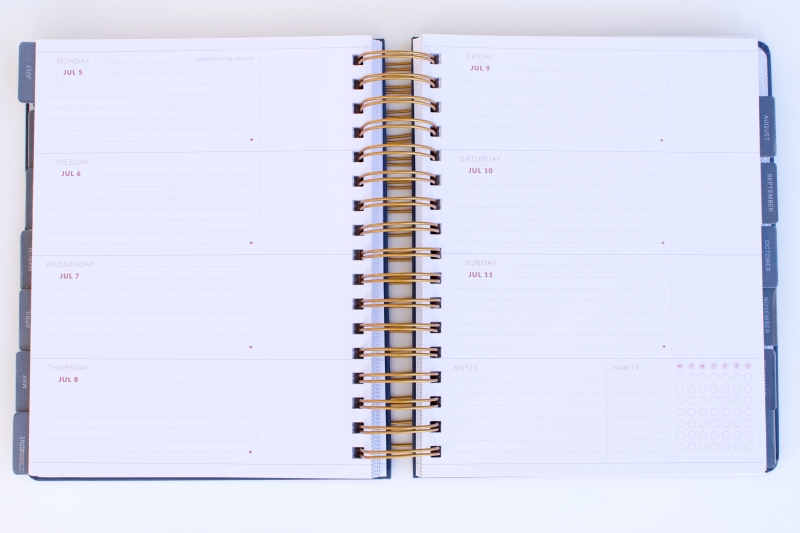 JULY
MONDAY
JUL 5
TUESDAY
JUL 6
WEDNESDAY
JUL 7
THURSDAY
JUL 8
MARCH
APRIL
MAY
JUNE
FRIDAY
JUL 9
SATURDAY
JUL 10
SUNDAY
JUL 11
NOTES
HABITS
M T W T F S S
AUGUST
SEPTEMBER
OCTOBER
NOVEMBER